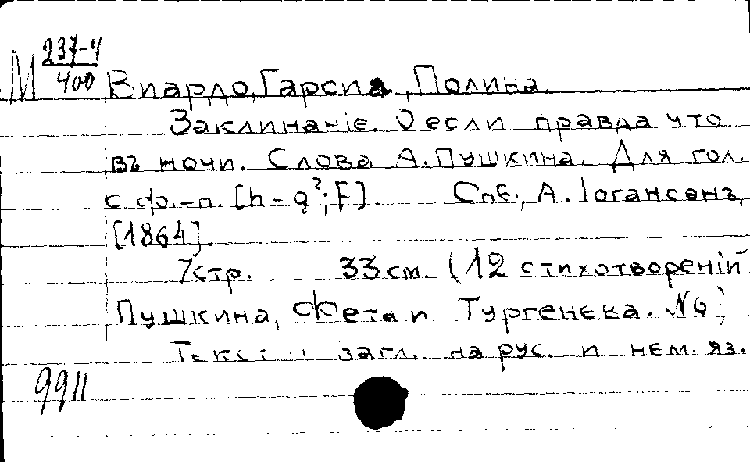 М 237-4/400
Виардо, Гарсиа, Полина.
Заклинаніе. О если правда что
въ ночи. Слова А. Пушкина. Для гол.
с ф.-п. [h-g²; F]. Спб., А. Іогансенъ,
[1864].
7 стр. 33 см. (12 стихотвореній
Пушкина, Фета и Тургенева. №9)
Текст и загл. на рус. и нем. яз.
9911